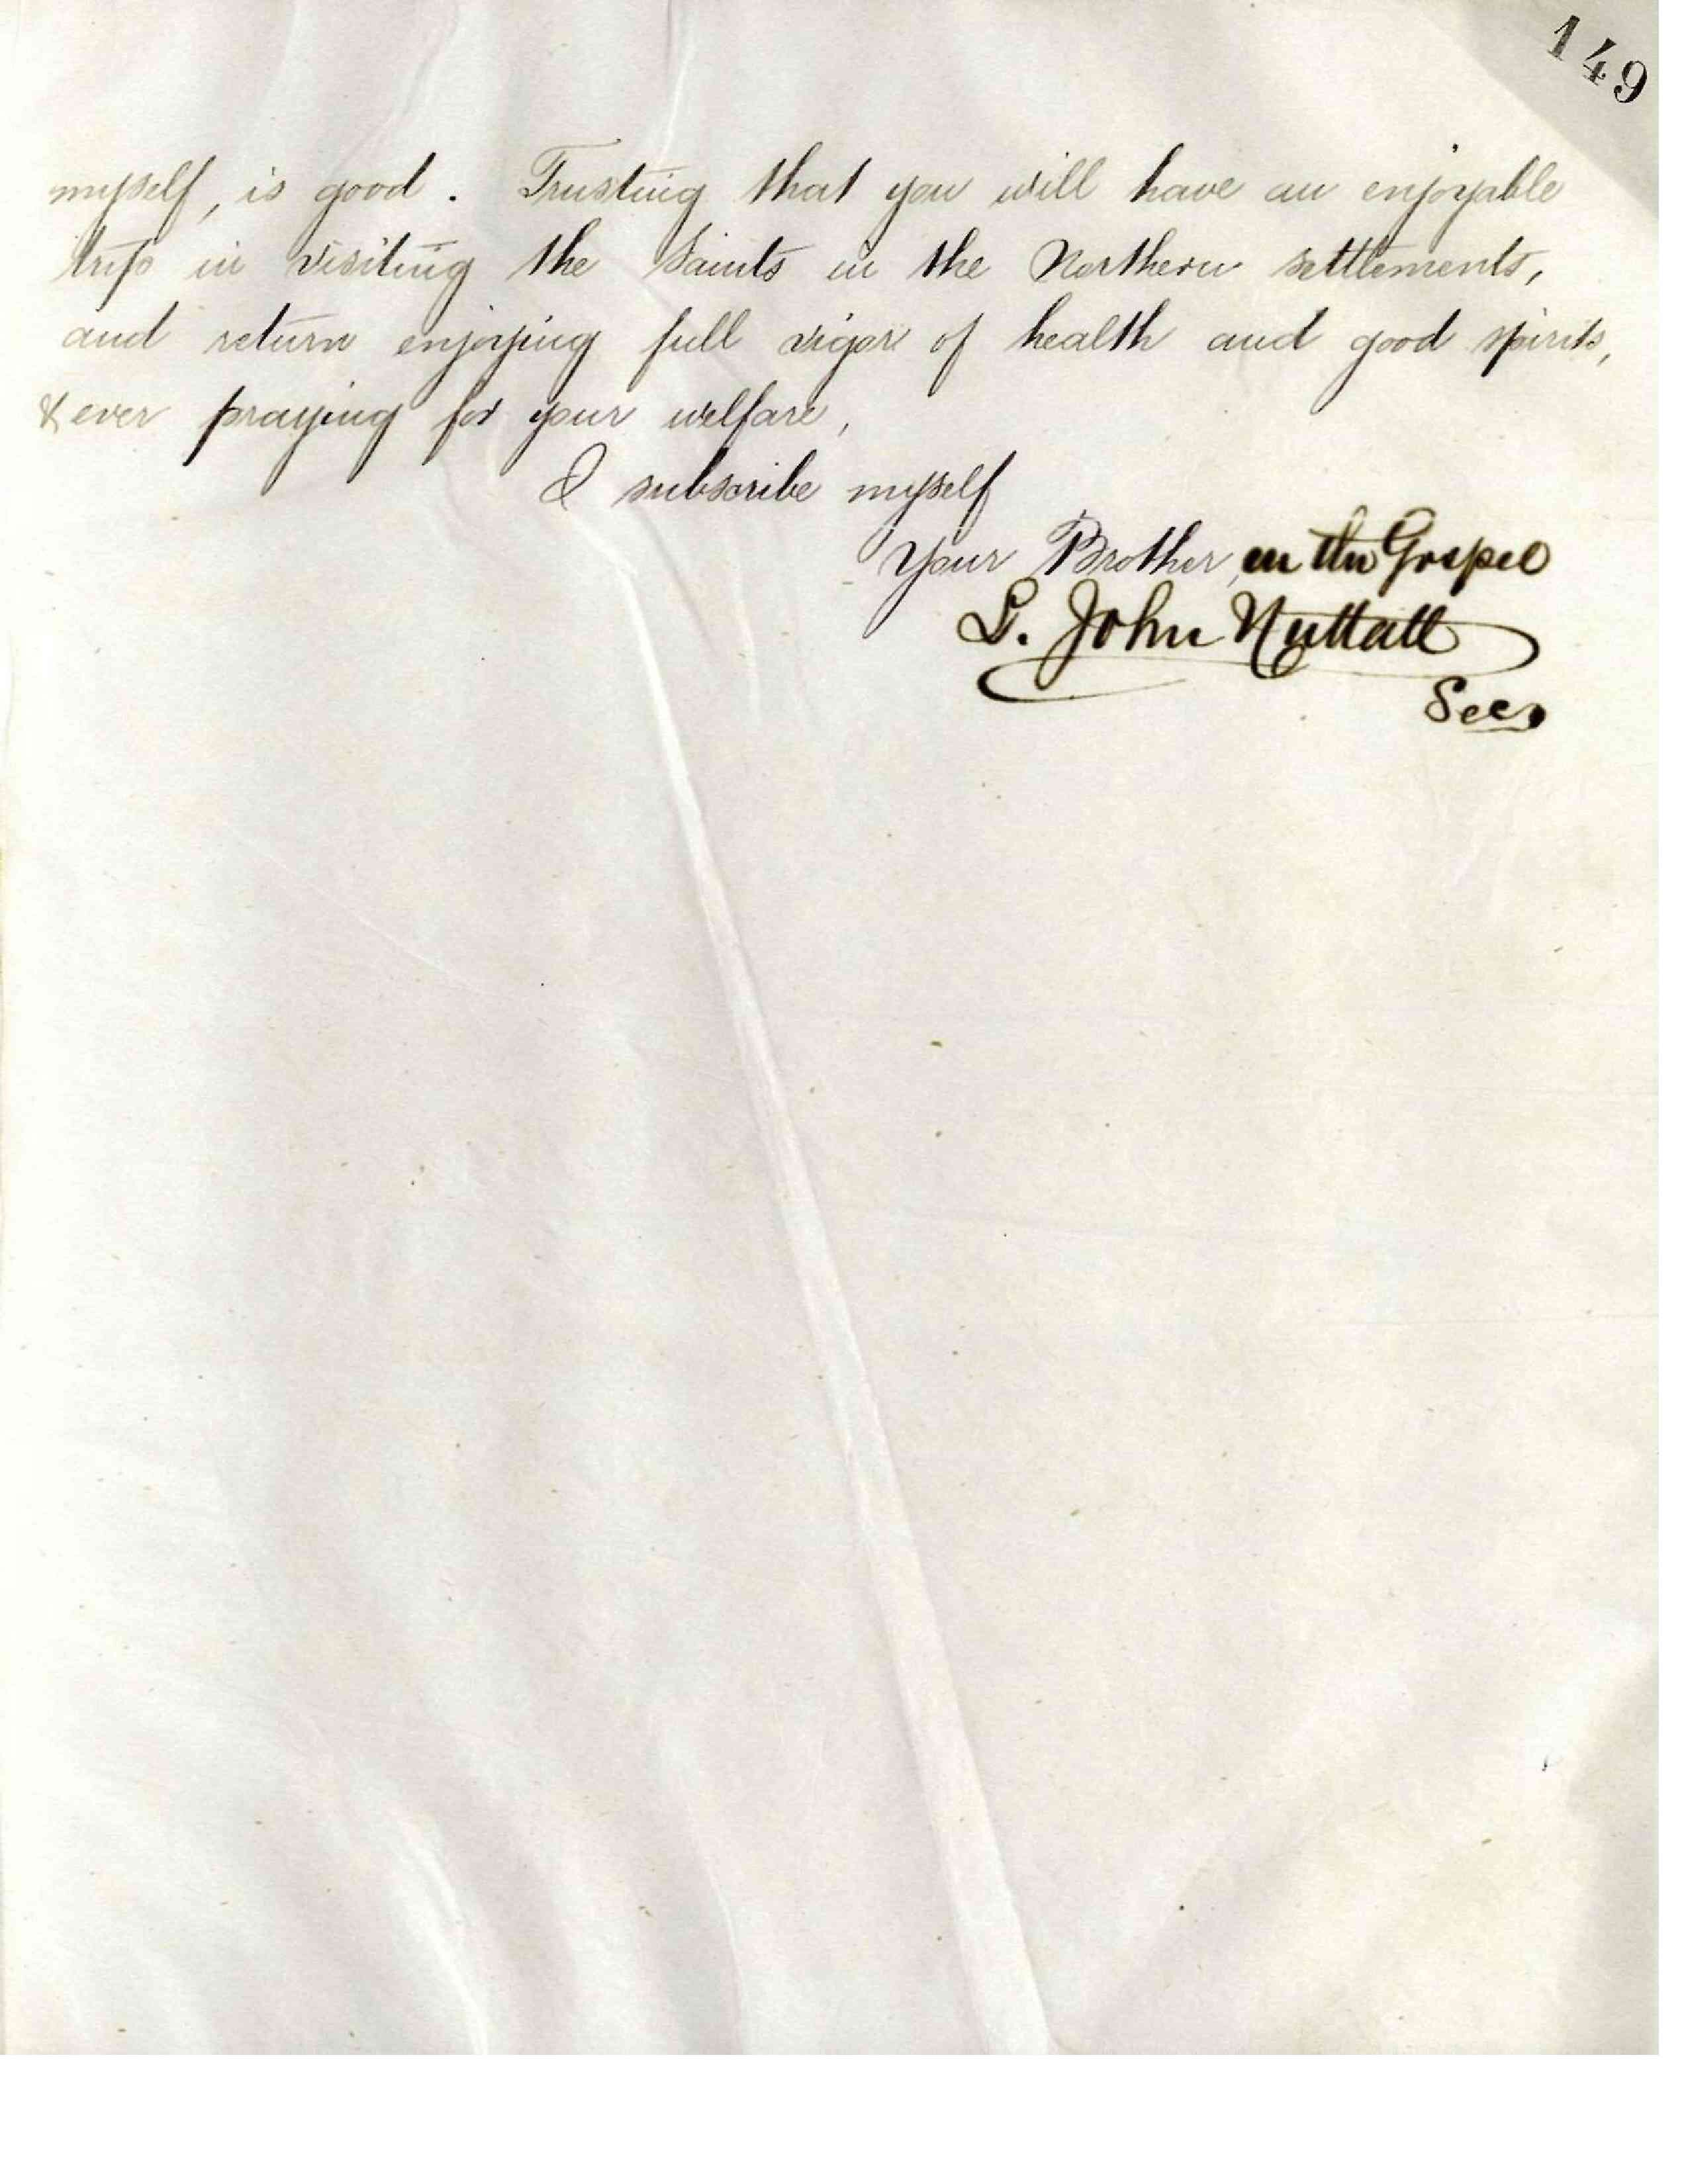 149
myself, is good. Trusting that you will have an enjoyable
trip in visiting the Saints in the Northern settlements,
and return enjoying full vigor of health and good spirits,
& ever praying for your welfare,
I subscribe myself
Your Brother, in the Gospel
L. John Nuttall
Sec.